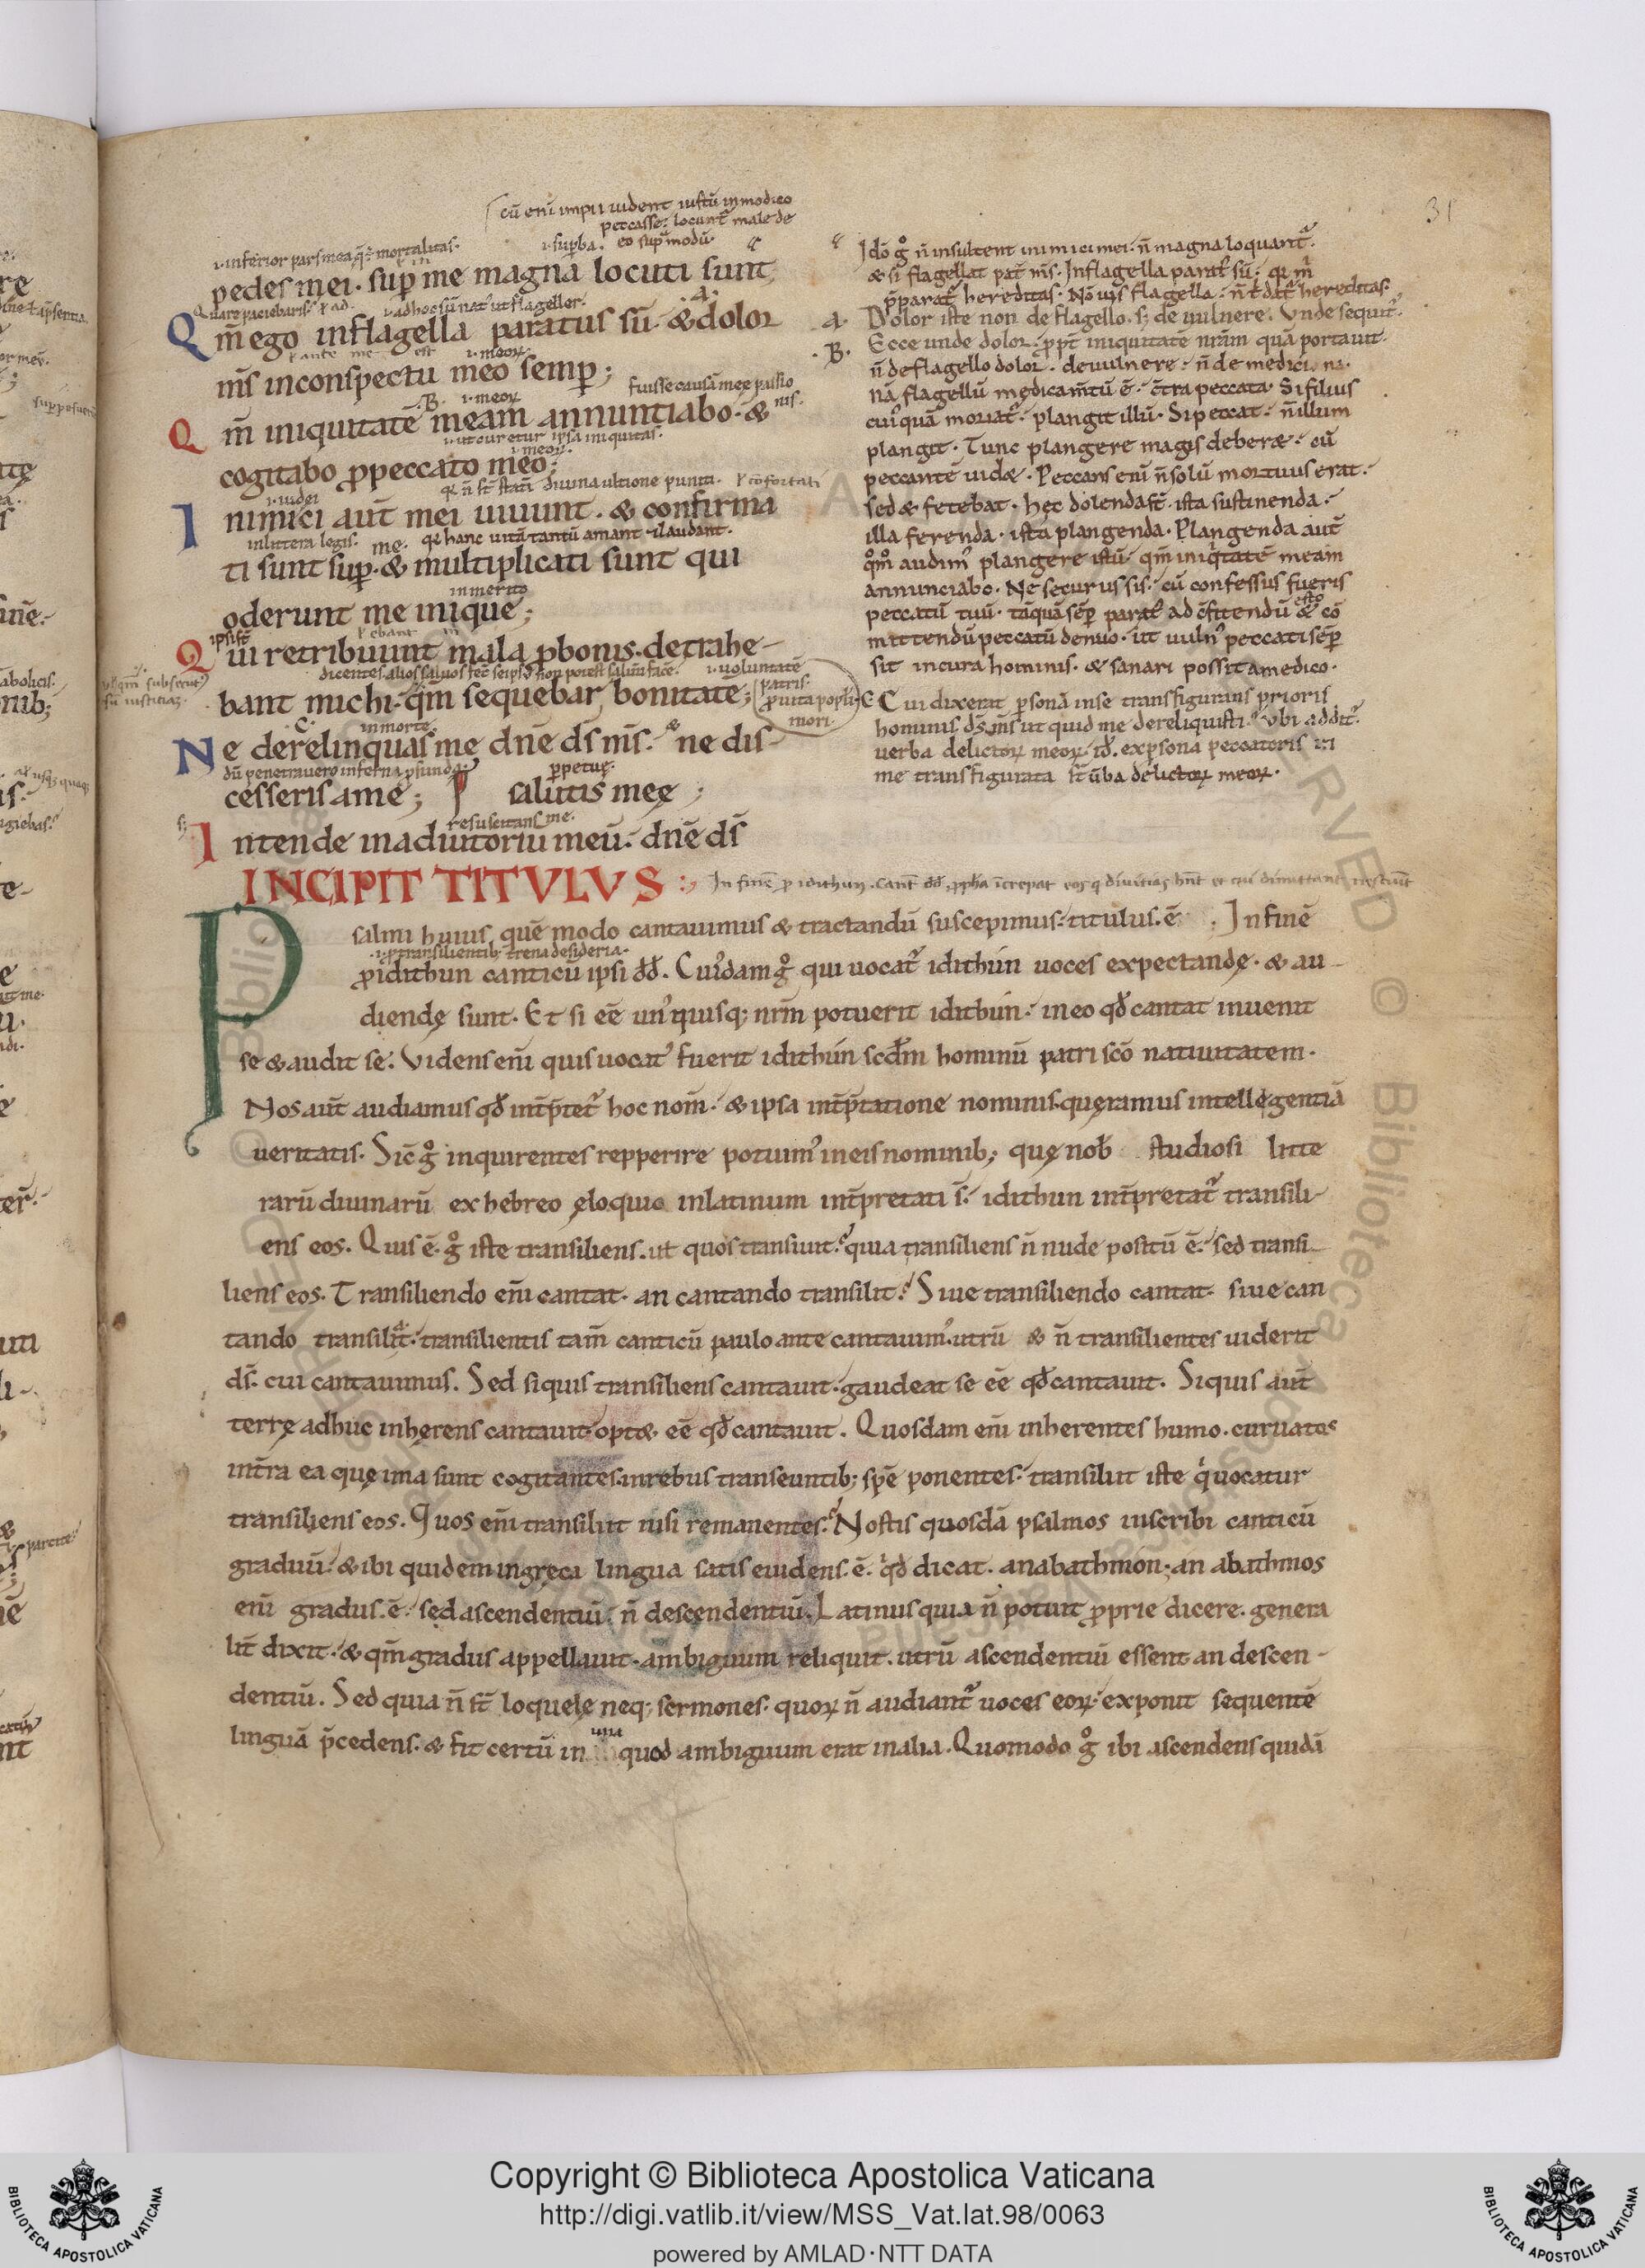 31
cū enī impii uident iustū inmodico
peccasse: locunt᷑ male de
eo sup̄ modū
.i. inferior pars mea q̄ ē mortalitas.
.i. sup̄ba.
pedes mei. sup̄ me magna locuti sunt
.i. adhoc sū nat᷒ ut flageller.
Qm̄ ego inflagella paratus sū. & dolor
.i. meoꝝ
m̄s inconspectu meo semp̄;
fuisse causā meę passio
nis.
.B. .i. meoꝝ
Qm̄ iniquitatē meam annuntiabo. &
.i. ut curetur ipsa iniquitas.
.i. meoꝝ.
cogitabo ꝓpeccato meo;
q̄ n̄ st̄ statī diuina ultione puniti.
.i. iudei
Inimici aut̄ mei uiuunt. & confirma
inlittera legis. me. q̄ hanc uitā tantū amant & laudant.
ti sunt sup̄. & multiplicati sunt qui
inmerito
oderunt me inique;
ipsi st̄
Qui retribuunt mala ꝓbonis. detrahe-
dicentes. alios saluos fec̄ seipsū non potest saluū facē. .i. uoluntatē
patris.
bant michi. qm̄ sequebar bonitatē;
ꝓ uita popl̄i
mori.
C. inmorte
Ne derelinquas me dn̄e ds̄ m̄s. & ne dis-
dū penetrauero inferna ꝓfunda.
ꝑpetuę.
cesseris a me; salutis meę;
resuscitans me.
Intende inadiutoriū meū. dn̄e ds̄
Idō g̊ n̄ insultent inimici mei. n̄ magna loquant᷑.
& si flagellat pat̄ m̄s. Inflagella parat᷒ sū. q̄ m̄
p̄parat᷑ hereditas. Nō uis flagella. n̄ t̄ dat᷑ hereditas.
A. Dolor iste non de flagello. s; de uulnere. Vnde sequit᷑.
.B. Ecce unde dolor. ꝓpt̄ iniquitatē meam quā portauit.
n̄ deflagello dolor. deuulnere. n̄ de medicina.
nā flagellū medicam̄tū ē. c̄tra peccata. Si filius
cui᷒quā moriat᷑. plangit illū. Si peccat. n̄ illum
plangit. Tunc plangere magis deber&. cū
peccantē uid&. Peccans enī n̄ solū mortuus erat.
sed & fetebat. hęc dolenda st̄. ista sustinenda.
illa ferenda. ista plangenda. Plangenda aut̄
q̊m̊ audim᷒ plangere istū. qm̄ iniq̇tatē meam
annunciabo. Ne securus sis. cū confessus fueris
peccatū tuū. tāquā sēp̄ parat᷒ ad c̄fitendū & cō
mittendū peccatū denuo. ut uuln᷒ peccati sēp̄
sit incura hominis. & sanari possit a medico.
C Cui dixerit ꝑsonā inse transfigurans prioris
hominis ds̄ m̄s ut quid me dereliquisti. Vbi addit᷑.
uerba delictoꝝ meoꝝ. id̄. ex ꝑsona peccatoris in
me transfigurata st̄ uerba delictoꝝ meoꝝ.
INCIPIT TITVLVS
In finē ꝓ idithun. cant̄ dd̄. ꝓph̄a īcrepat eos q̇ diuitias hn̄t et cui dimittant nesciūt
Psalmi huius quē modo cantauimus & tractandū suscepimus. titulus. ē. In finē
.i. ꝓ transilientib; terrena desideria.
ꝓ idithun canticū ipsi dd̄. Cui᷒dam g̊ qui uocat᷑ idithún uoces expectandę. & au-
diendę sunt. Et si eē un᷒quisq; nr̄m potuerit idithún. in eo qd̄ cantat inuenit
se & audit se. Videns enī quis uocat᷒ fuerit idithún scd̄m hominū patrisco natiuitatem.
Nos aut̄ audiamus qd̄ int̄p̄tet᷑ hoc nom̄. & ipsa int̄p̄tatione nominis. quęramus intellegentiā
ueritatis. Sic̄ g̊ inquirentes repperire potuim᷒ ineis nominib; quę nob̄ studiosi litte
rarū diuinarū ex hebreo ęloquio inlatinum int̄pretati s̄. idithun int̄pretat᷑ transili-
ens eos. Quis ē. g̊ iste transiliens. ut quos transiuit. quia transiliens n̄ nude positū ē. sed transi-
liens eos. Transiliendo enī cantat. an cantando transilit. Siue transiliendo cantat. siue can
tando transilit. transilientis tam̄ canticū paulo ante cantauim᷒. utrū & n̄ transilientes uiderit
ds̄. cui cantauimus. Sed siquis transiliens cantauit. gaudeat se eē qd̄ cantauit. Siquis aut̄
terrę adhuc inherens cantauit. opt& eē qd̄ cantauit. Quosdam enī inherentes humo. curuatos
intra ea quę ima sunt cogitantes. inrebus transeuntib; spē ponentes. transiliit iste q̇ uocatur
transiliens eos. Quos enī transiliit nisi remanentes. Nostis quosdā psalmos inscribi canticū
graduū. & ibi quidem ingręca lingua satis euidens. ē. qd̄ dicat. anabathmón; an abathmos
enī gradus. ē. sed ascendentiū. n̄ descendentiū. Latinus quia n̄ potuit ꝓprie dicere. genera
lit̄ dixit. & qm̄ gradus appellauit. ambiguum reliquit. utrū ascendentiū essent an descen-
dentiū. Sed quia n̄ st̄ loquelę neq; sermones. quoꝝ n̄ audiant᷑ uoces eoꝝ. exponit sequentē
linguā p̄cedens. & fit certū in una quod ambiguum erat inalia. Quomodo g̊ ibi ascendens quidā
Copyright © Biblioteca Apostolica Vaticana
http://digi.vatlib.it/view/MSS_Vat.lat.98/0063
powered by AMLAD·NTT DATA
BIBLIOTECA APOSTOLICA VATICANA
BIBLIOTECA APOSTOLICA VATICANA